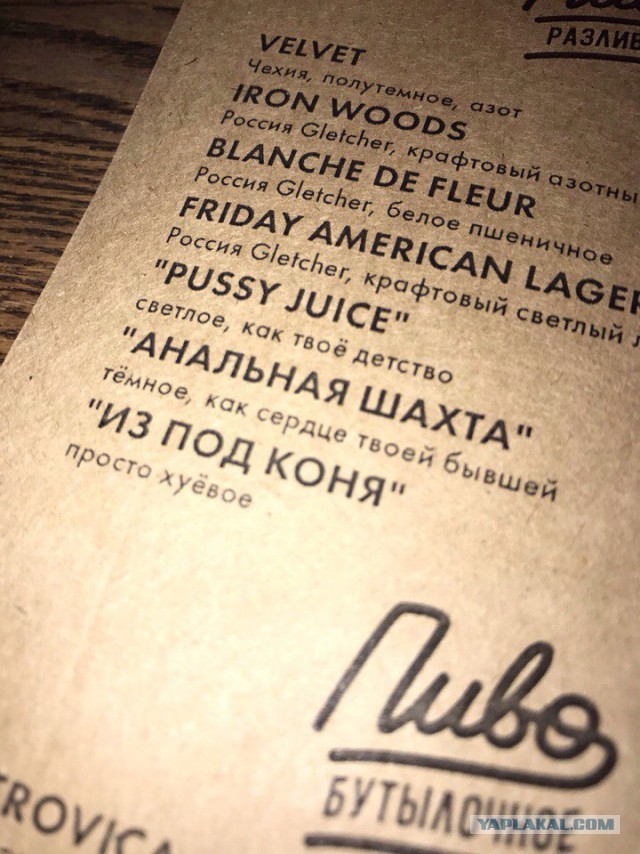 РАЗЛИВ
VELVET
Чехия, полутемное, азот
IRON WOODS
Россия Gletcher, крафтовый азотны
BLANCHE DE FLEUR
Россия Gletcher, белое пшеничное
FRIDAY AMERICAN LAGER
Россия Gletcher, крафтовый светлый л
"PUSSY JUICE"
светлое, как твоё детство
"АНАЛЬНАЯ ШАХТА"
тёмное, как сердце твоей бывшей
"ИЗ ПОД КОНЯ"
просто хуёвое
Пиво
БУТЫЛОЧНОЕ
TROVICA
YAPLAKAL.COM